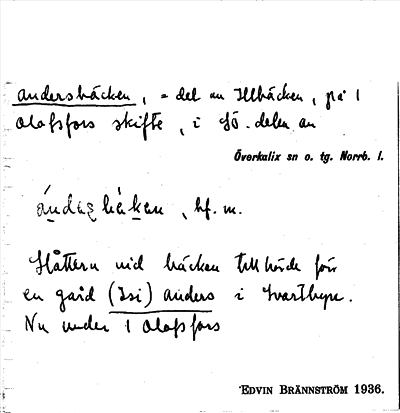 andersbäcken, = del av Illbäcken, på 1
Olofsfors skifte, i sö. delen av
Överkalix sn o. tg. Norrb. l.
bf. m.
Slåttern vid bäcken tillhörde förr
en gård (Isi) anders i Svartbyn.
Nu under 1 Olofsfors
EDVIN BRÄNNSTRÖM 1936.